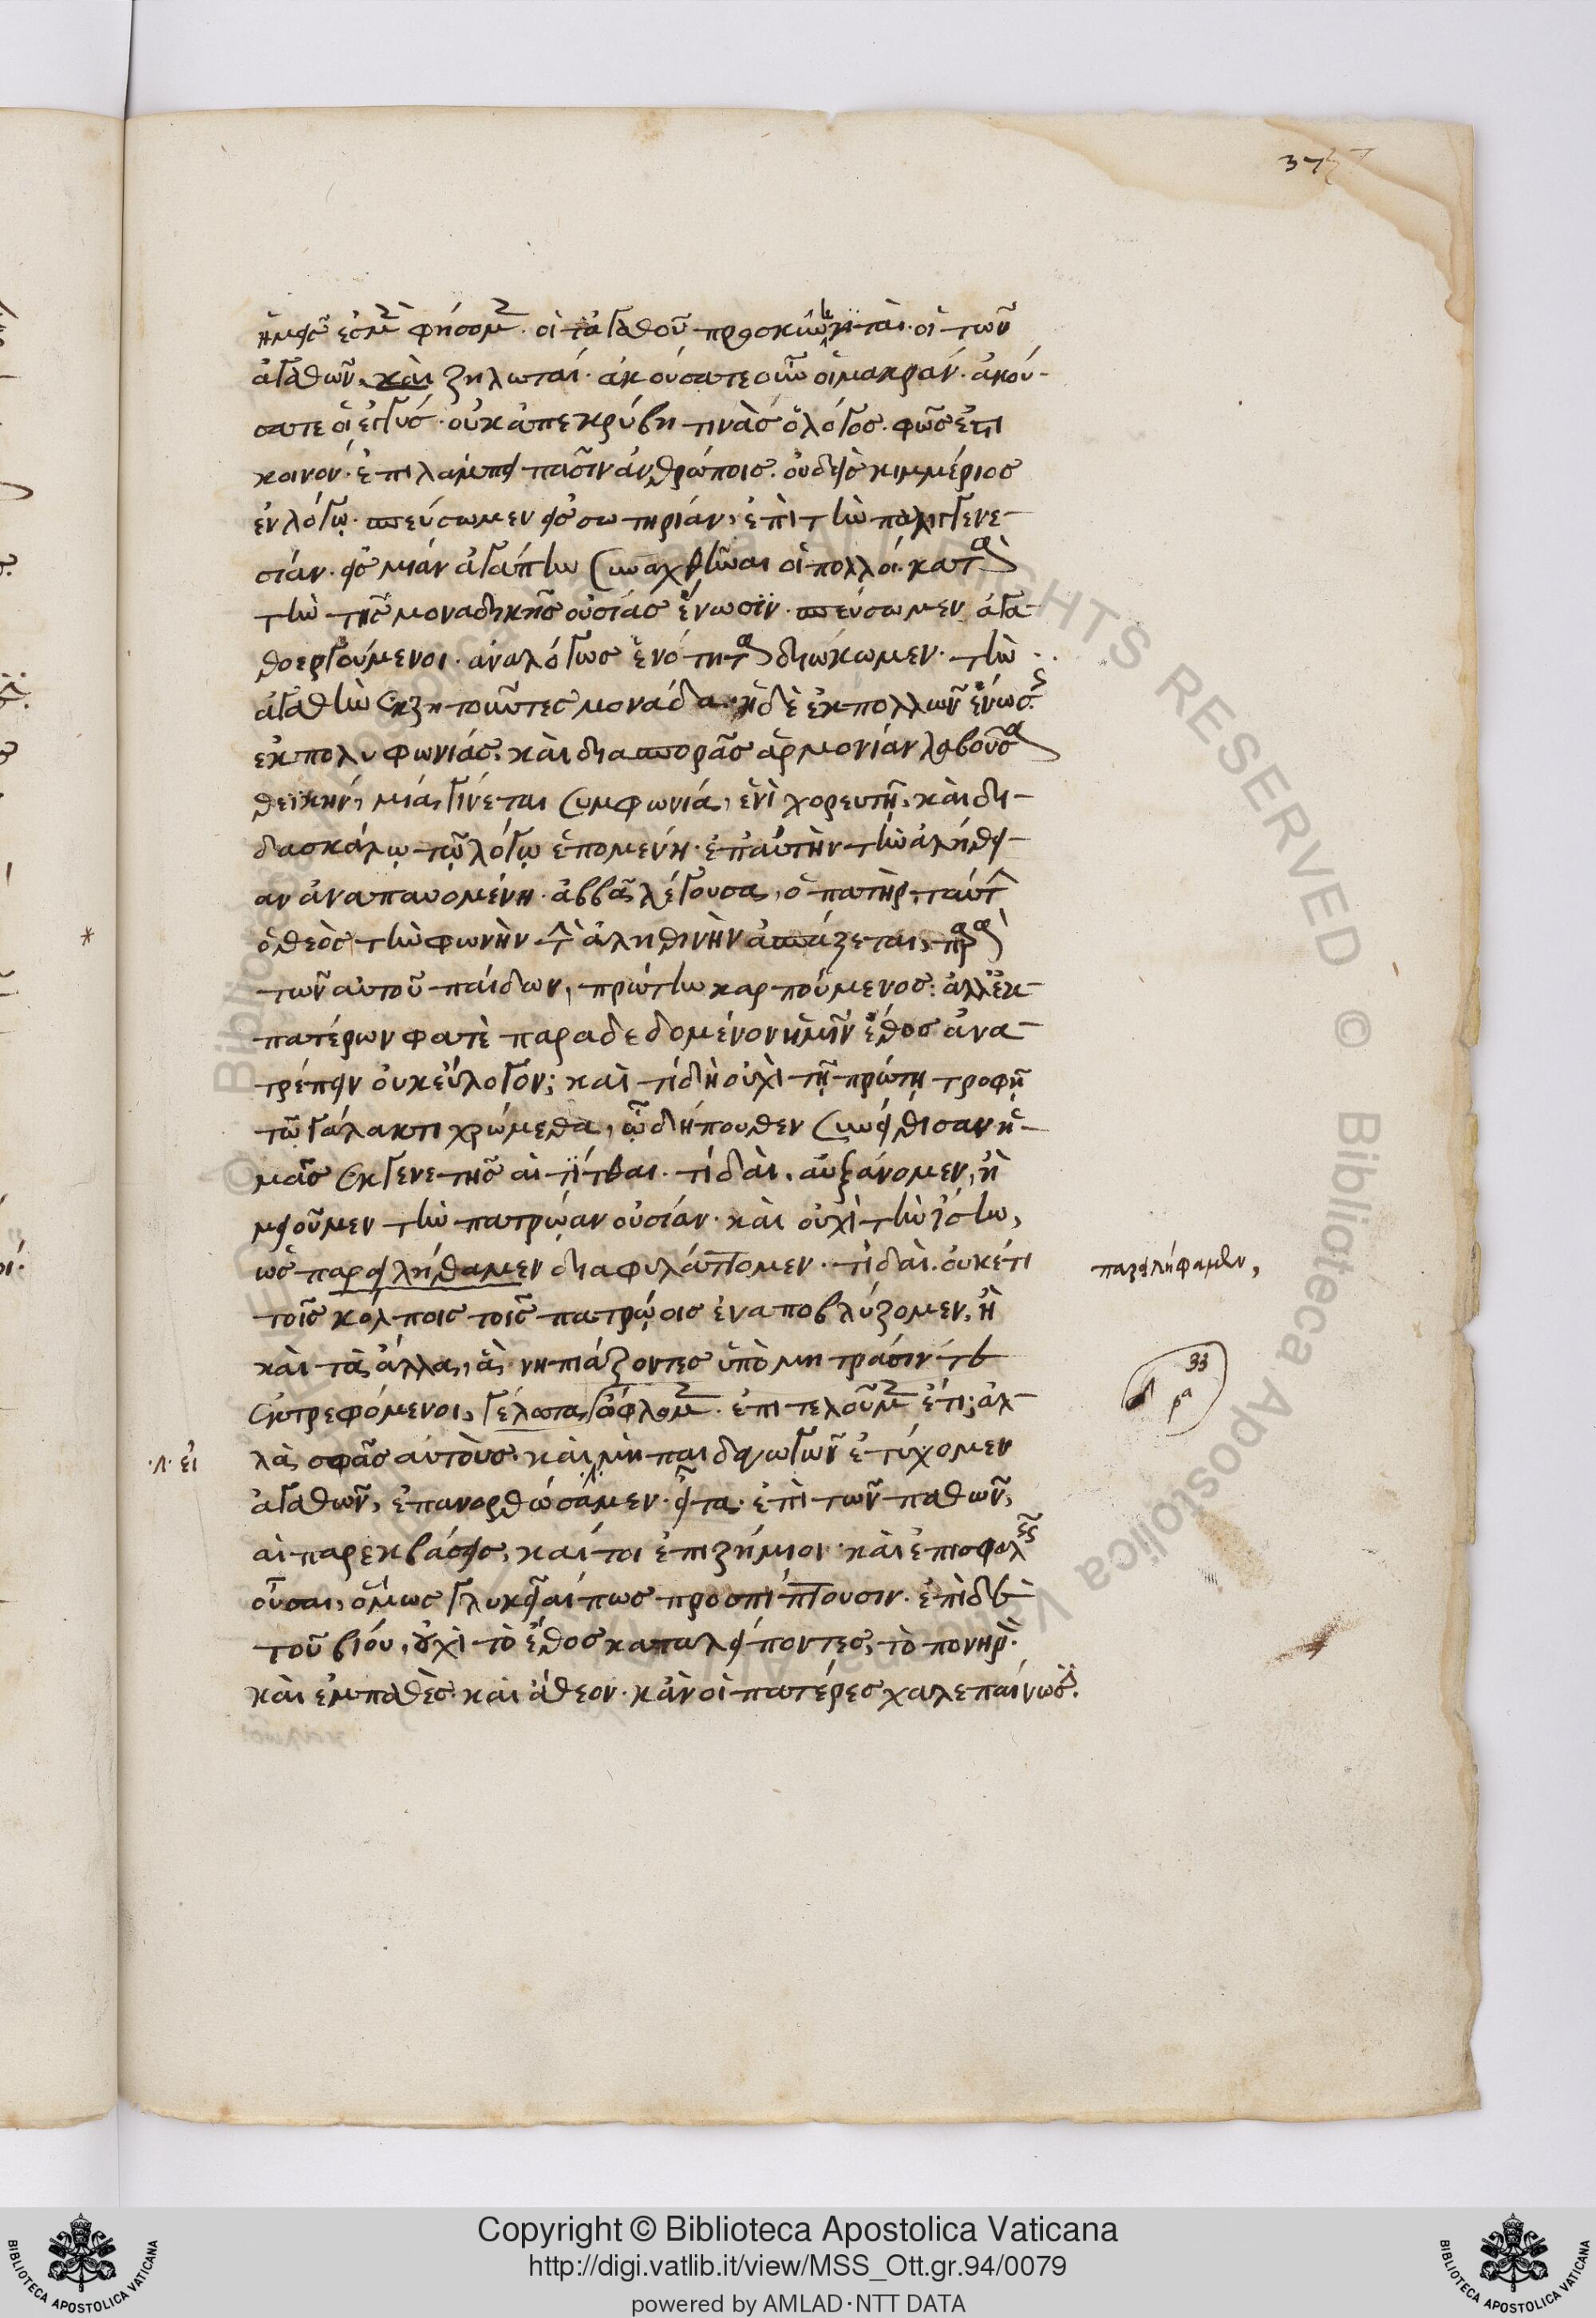 37
ἡμεῖς ἐσμὲν φήσομεν. οἱ τἀγαθοῦ προσκυνηταὶ. οἱ τῶν
ἀγαθῶν, καὶ ζηλωταί. ἀκούσατε οὖν οἱ μακράν. ἀκού-
σατε οἱ ἐγγύς. οὐκ ἀπεκρύβη τινὰς ὁ λόγος. φῶς ἐστι
κοινόν. ἐπιλάμπει πᾶσιν ἀνθρώποις. οὐδεὶς κιμμέριος
ἐν λόγῳ. σπεύσωμεν εἰς σωτηρίαν, ἐπὶ τὴν παλιγγενε-
σίαν. εἰς μίαν ἀγάπην συναχθῆναι οἱ πολλοί. κατὰ
τὴν τῆς μοναδικῆς οὐσίας ἕνωσιν. σπεύσωμεν ἀγα-
θοεργούμενοι. ἀναλόγως ἑνότητα διώκωμεν. τὴν
ἀγαθὴν ἐκζητοῦντες μονάδα. ἡ δὲ ἐκ πολλῶν ἕνωσις
ἐκ πολυφωνίας, καὶ διασπορᾶς ἁρμονίαν λαβοῦσα
θεϊκήν, μία γίνεται συμφωνία, ἑνὶ χορευτῇ, καὶ δι-
δασκάλῳ τῷ λόγῳ ἑπομένη. ἐπ' αὐτὴν τὴν ἀλήθει-
αν ἀναπαυομένη. ἀββᾶ λέγουσα, ὁ πατήρ, ταύτην
ὁ θεὸς τὴν φωνὴν τὴν ἀληθινὴν ἀσπάζεται, παρὰ
τῶν αὐτοῦ παίδων, πρώτην καρπούμενος. ἀλλ' ἐκ
πατέρων φατὲ παραδεδομένον ἡμῖν ἔθος ἀνα-
τρέπειν οὐκ εὔλογον; καὶ τί δὴ οὐχὶ τῇ πρώτῃ τροφῇ
τῷ γάλακτι χρώμεθα, ᾧ δήπουθεν συνείθισαν ἡ-
μᾶς ἐκ γενετῆς αἱ τίτθαι. τί δαὶ, αὐξάνομεν, ἢ
μειοῦμεν τὴν πατρῴαν οὐσίαν. καὶ οὐχὶ τὴν ἴσην,
ὡς παρειλήθαμεν διαφυλάττομεν. τί δαὶ. οὐκέτι
τοῖς κόλποις τοῖς πατρῴοις ἐναποβλύζομεν, ἢ
καὶ τὰ ἄλλα, ἃ νηπιάζοντες ὑπὸ μητράσιν τε
ἐκτρεφόμενοι, γέλωτα ὤφλομεν. ἐπιτελοῦμεν ἔτι; ἀλ-
λὰ σφᾶς αὐτοὺς. καὶ μὴ παιδαγωγῶν ἐτύχομεν
ἀγαθῶν, ἐπανορθώσαμεν. εἶτα. ἐπὶ τῶν παθῶν,
αἱ παρεκβάσεις, καίτοι ἐπιζήμιοι. καὶ ἐπισφαλεῖς
οὖσαι, ὅμως γλυκεῖαί πως προσπίπτουσιν. ἐπὶ δὲ
τοῦ βίου, οὐχὶ τὸ ἔθος καταλείποντες, τὸ πονηρὸν.
καὶ ἐμπαθὲς. καὶ ἄθεον. κἂν οἱ πατέρες χαλεπαίνωσιν.
παρειλήφαμεν,
33
ρα
.λ. εἰ
Copyright © Biblioteca Apostolica Vaticana
http://digi.vatlib.it/view/MSS_Ott.gr.94/0079
powered by AMLAD·NTT DATA